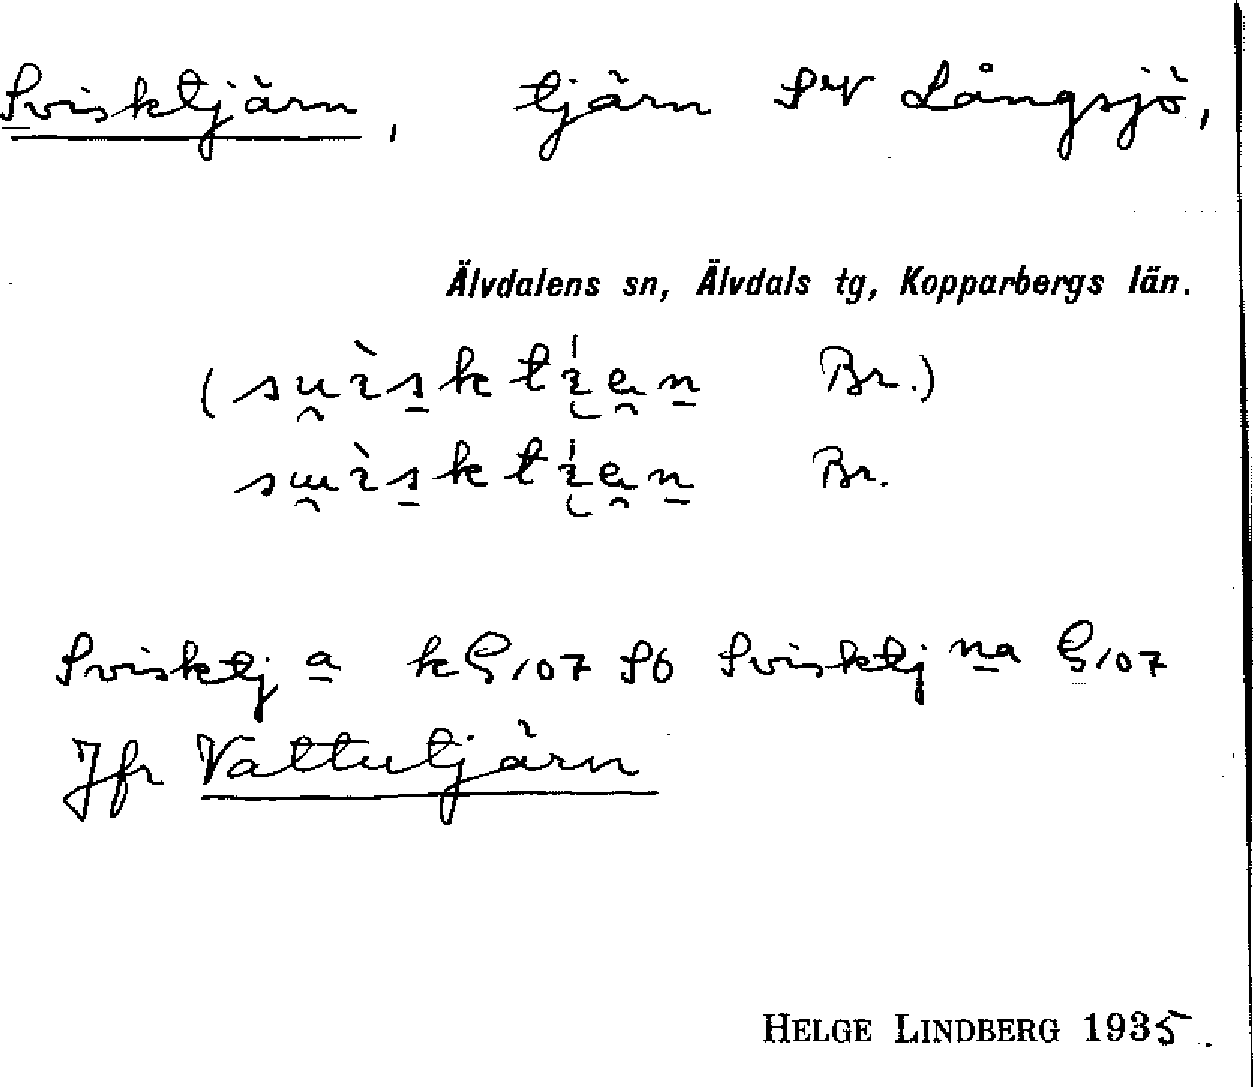 Svisktjärn, tjärn SV Långsjö,
Älvdalens sn, Älvdals tg, Kopparbergs län.
(su̯ìs̱ktí̜e̯ṉ Br.)
sɯ̯ìs̱ktí̜e̯ṉ Br.
Svisktj a̱ k G107 S6 Svisktj ṉa G107
Jfr Vattutjärn
HELGE LINDBERG 1935.